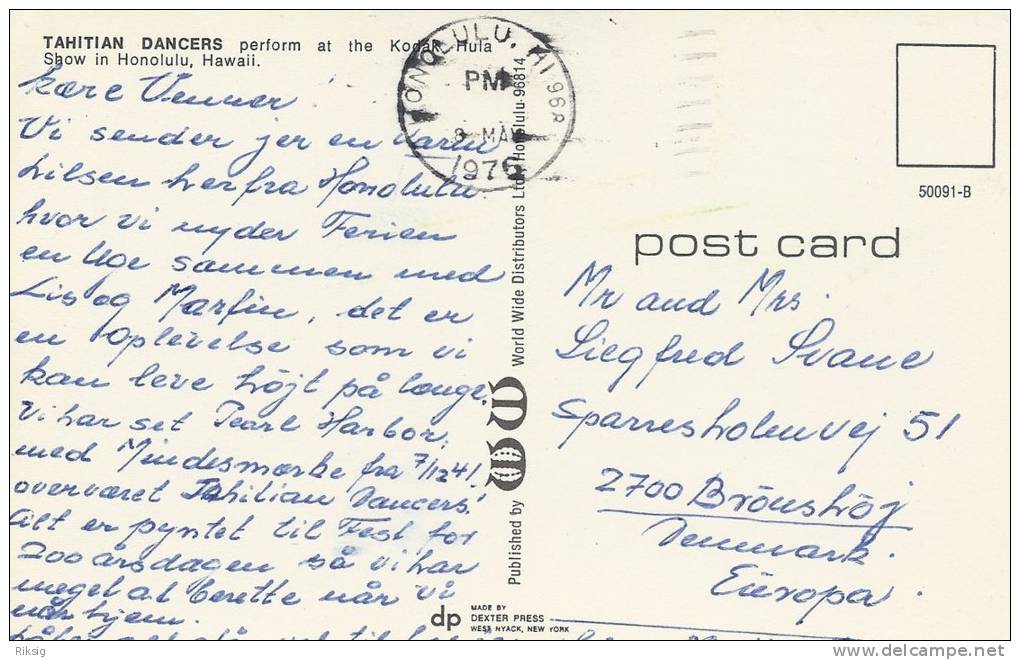 TAHITIAN DANCERS perform at the Kodak Hula
Show in Honolulu, Hawaii.
Kære Venner
Vi sender jer en varm
hilsen herfra Honolulu.
hvor vi nyder Ferien
en Uge sammen med
Lis og Martin, det er
en oplevelse som vi
kan leve højt på længe.
Vi har set Pearl Harbor,
med Mindesmærke fra 7/12 41.
overværet Tahitian Dancers!
Alt er pyntet til Fest for
200 årsdagen så vi har
meget at berette når vi
når hjem.
HONOLULU, HI 968
PM
8 MAY
1976
Published by World Wide Distributors Ltd. Honolulu 96814
dp
MADE BY
DEXTER PRESS
WEST NYACK, NEW YORK
50091-B
post card
Mr and Mrs.
Siegfred Svane
Sparresholmvej 51
2700 Brönshöj
Denmark.
Europa.
Riksig
www.delcampe.net